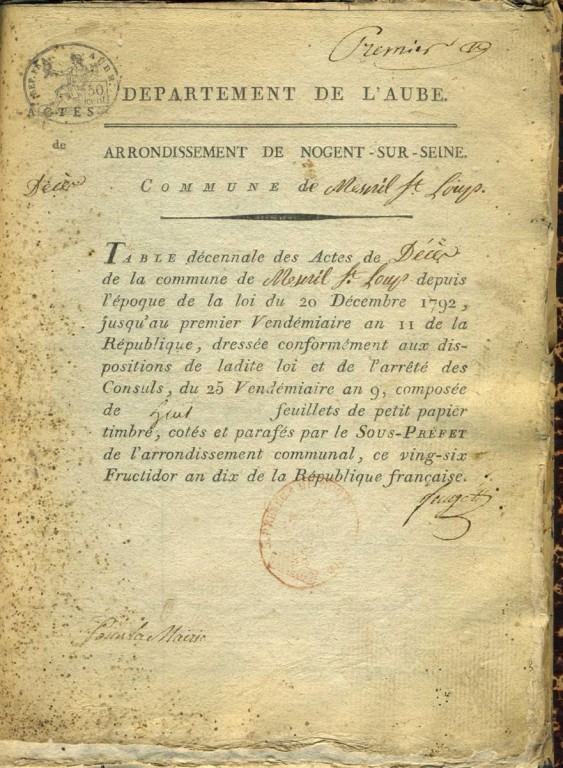 Premier
AUBE
50
DEPARTEMENT DE L'AUBE.
ACTES
de
Décès
ARRONDISSEMENT DE NOGENT-SUR-SEINE.
COMMUNE de Mesnil St. Loup.
TABLE décennale des Actes de Décès
de la commune de Mesnil St. Loup depuis
l'époque de la loi du 20 Décembre 1792,
jusqu'au premier Vendémiaire an 11 de la
République, dressée conformément aux dis-
positions de ladite loi et de l'arrêté des
Consuls, du 25 Vendémiaire an 9, composée
de huit feuillets de petit papier
timbré, cotés et parafés par le SOUS-PRÉFET
de l'arrondissement communal, ce ving-six
Fructidor an dix de la République française.
Pour la Mairie